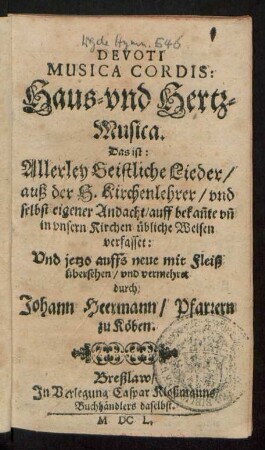 Wgde Hymn. 546
DEVOTI
MUSICA CORDIS:
Haus-vnd Hertz-
Musica.
Das ist:
Allerley Geistliche Lieder/
auß der H. Kirchenlehrer/vnd
selbst eigener Andacht/auff bekañte vñ
in vnsern Kirchen übliche Weisen
verfasset:
Und jetzo auffs neue mit Fleiß
übersehen/vnd vermehret
durch
Johann Heermann/Pfarrern
zu Köben.
Breßlaw/
In Verlegung Caspar Kloßmanns/
Buchhändlers daselbst.
M DC L.